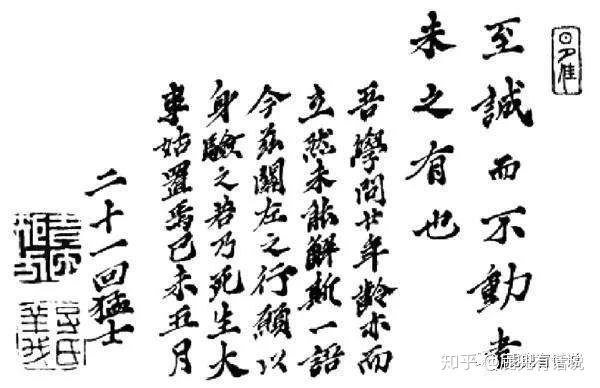 至誠而不動者
未之有也
吾學問廿年齡亦而
立然未能解斯一語
今茲關左之行願以
身驗之若乃死生大
事姑置焉己未五月
二十一回猛士
知乎